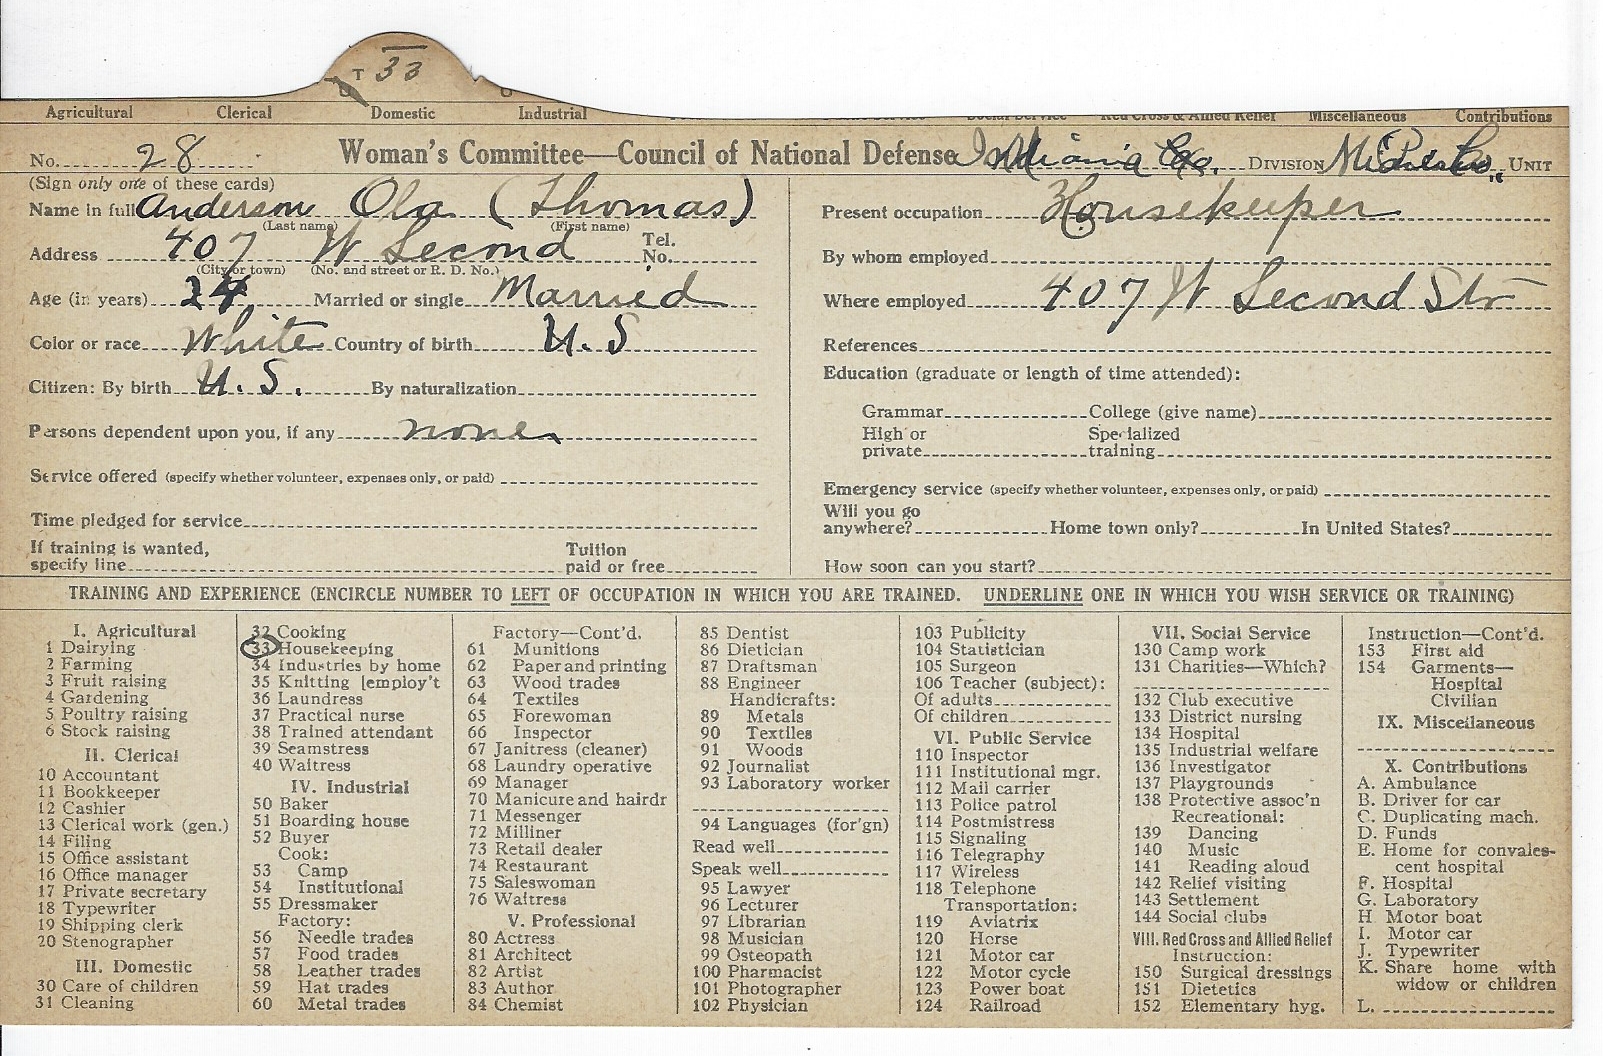 T 33
Agricultural Clerical Domestic Industrial Social Service Red Cross & Allied Relief Miscellaneous Contributions
No. 28 Woman's Committee—Council of National Defense Indiana Co. DIVISION UNIT
(Sign only one of these cards)
Name in full Anderson Ola (Thomas)
(Last name) (First name)
Address 407 W Second Tel. No.
(City or town) (No. and street or R. D. No.)
Age (in years) 24 Married or single Married
Color or race White Country of birth U. S
Citizen: By birth U. S. By naturalization
Persons dependent upon you, if any none
Service offered (specify whether volunteer, expenses only, or paid)
Time pledged for service
If training is wanted, specify line Tuition paid or free
Present occupation Housekeeper
By whom employed
Where employed 407 W Second Str
References
Education (graduate or length of time attended):
Grammar College (give name)
High or private Specialized training
Emergency service (specify whether volunteer, expenses only, or paid)
Will you go anywhere? Home town only? In United States?
How soon can you start?
TRAINING AND EXPERIENCE (ENCIRCLE NUMBER TO LEFT OF OCCUPATION IN WHICH YOU ARE TRAINED. UNDERLINE ONE IN WHICH YOU WISH SERVICE OR TRAINING)
I. Agricultural
1 Dairying
2 Farming
3 Fruit raising
4 Gardening
5 Poultry raising
6 Stock raising
II. Clerical
10 Accountant
11 Bookkeeper
12 Cashier
13 Clerical work (gen.)
14 Filing
15 Office assistant
16 Office manager
17 Private secretary
18 Typewriter
19 Shipping clerk
20 Stenographer
III. Domestic
30 Care of children
31 Cleaning
32 Cooking
33 Housekeeping
34 Industries by home
35 Knitting [employ't
36 Laundress
37 Practical nurse
38 Trained attendant
39 Seamstress
40 Waitress
IV. Industrial
50 Baker
51 Boarding house
52 Buyer
Cook:
53 Camp
54 Institutional
55 Dressmaker
Factory:
56 Needle trades
57 Food trades
58 Leather trades
59 Hat trades
60 Metal trades
Factory—Cont'd.
61 Munitions
62 Paper and printing
63 Wood trades
64 Textiles
65 Forewoman
66 Inspector
67 Janitress (cleaner)
68 Laundry operative
69 Manager
70 Manicure and hairdr
71 Messenger
72 Milliner
73 Retail dealer
74 Restaurant
75 Saleswoman
76 Waitress
V. Professional
80 Actress
81 Architect
82 Artist
83 Author
84 Chemist
85 Dentist
86 Dietician
87 Draftsman
88 Engineer
Handicrafts:
89 Metals
90 Textiles
91 Woods
92 Journalist
93 Laboratory worker
94 Languages (for'gn)
Read well
Speak well
95 Lawyer
96 Lecturer
97 Librarian
98 Musician
99 Osteopath
100 Pharmacist
101 Photographer
102 Physician
103 Publicity
104 Statistician
105 Surgeon
106 Teacher (subject):
Of adults
Of children
VI. Public Service
110 Inspector
111 Institutional mgr.
112 Mail carrier
113 Police patrol
114 Postmistress
115 Signaling
116 Telegraphy
117 Wireless
118 Telephone
Transportation:
119 Aviatrix
120 Horse
121 Motor car
122 Motor cycle
123 Power boat
124 Railroad
VII. Social Service
130 Camp work
131 Charities—Which?
132 Club executive
133 District nursing
134 Hospital
135 Industrial welfare
136 Investigator
137 Playgrounds
138 Protective assoc'n
Recreational:
139 Dancing
140 Music
141 Reading aloud
142 Relief visiting
143 Settlement
144 Social clubs
VIII. Red Cross and Allied Relief
Instruction:
150 Surgical dressings
151 Dietetics
152 Elementary hyg.
Instruction—Cont'd.
153 First aid
154 Garments—
Hospital
Civilian
IX. Miscellaneous
X. Contributions
A. Ambulance
B. Driver for car
C. Duplicating mach.
D. Funds
E. Home for convales-
cent hospital
F. Hospital
G. Laboratory
H. Motor boat
I. Motor car
J. Typewriter
K. Share home with
widow or children
L.